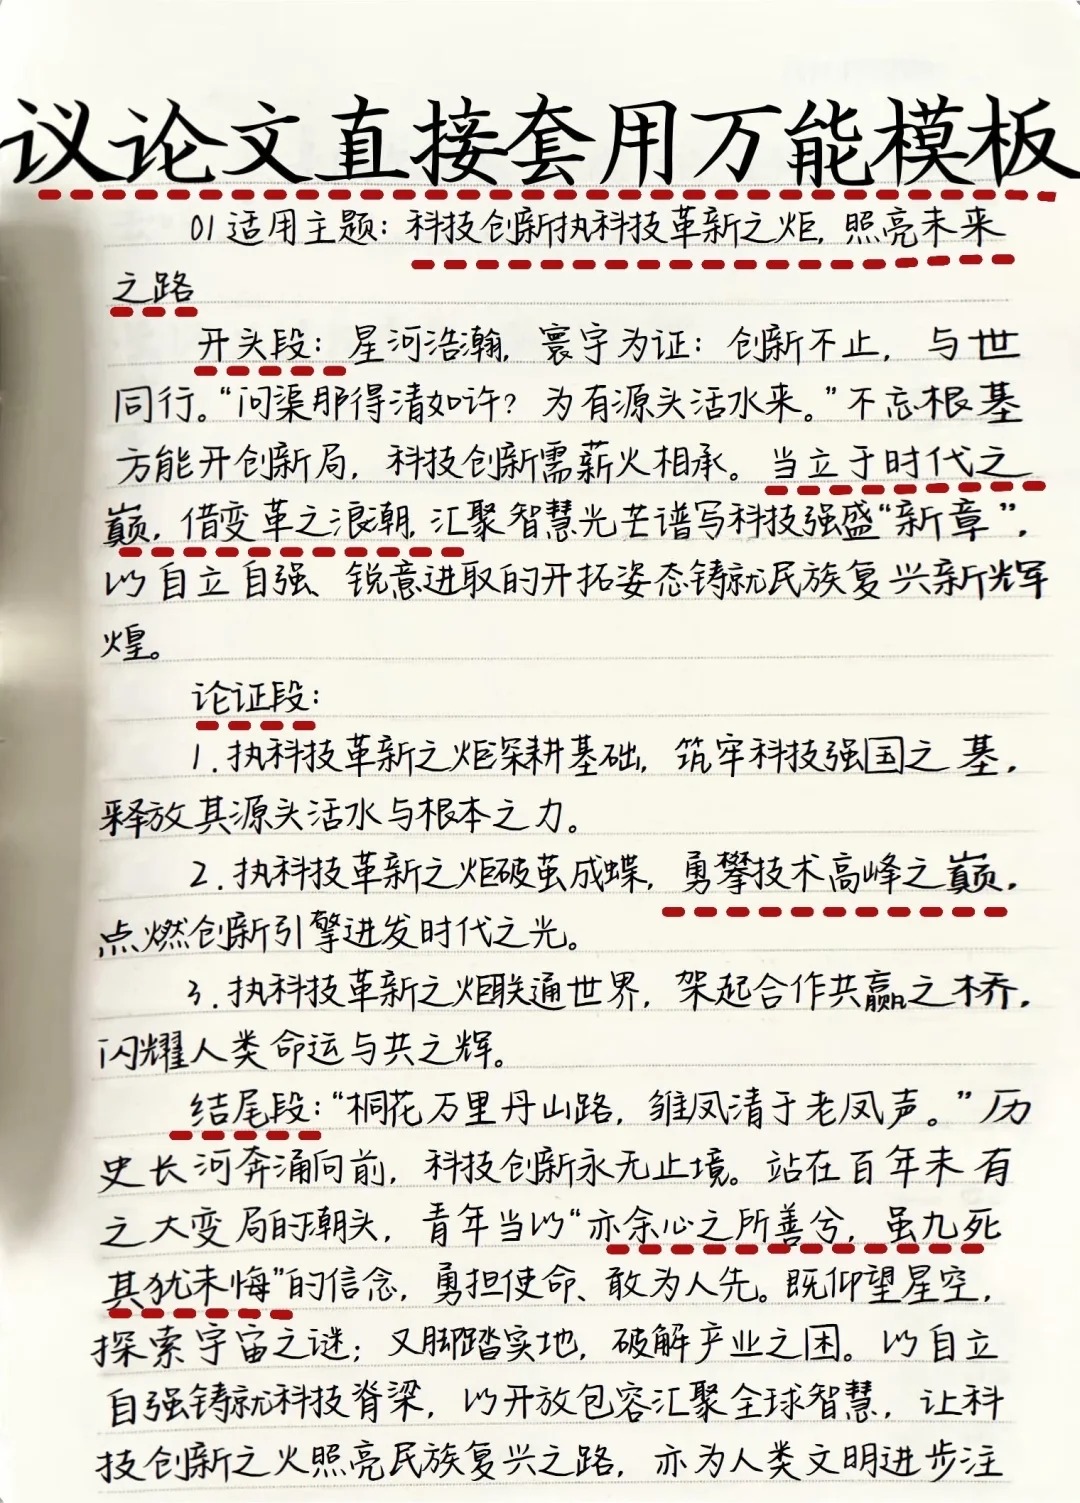 议论文直接套用万能模板
01适用主题：科技创新执科技革新之炬，照亮未来
之路
开头段：星河浩瀚，寰宇为证：创新不止，与世
同行。“问渠那得清如许？为有源头活水来。”不忘根基
方能开创新局，科技创新需薪火相承。当立于时代之
巅，借变革之浪潮，汇聚智慧光芒谱写科技强盛“新章”，
以自立自强、锐意进取的开拓姿态铸就民族复兴新辉
煌。
论证段：
1.执科技革新之炬深耕基础，筑牢科技强国之基，
释放其源头活水与根本之力。
2.执科技革新之炬破茧成蝶，勇攀技术高峰之巅，
点燃创新引擎进发时代之光。
3.执科技革新之炬联通世界，架起合作共赢之桥，
闪耀人类命运与共之辉。
结尾段：“桐花万里丹山路，雏凤清于老凤声。”历
史长河奔涌向前，科技创新永无止境。站在百年未有
之大变局的潮头，青年当以“亦余心之所善兮，虽九死
其犹未悔”的信念，勇担使命、敢为人先。既仰望星空，
探索宇宙之谜；又脚踏实地，破解产业之困。以自立
自强铸就科技脊梁，以开放包容汇聚全球智慧，让科
技创新之火照亮民族复兴之路，亦为人类文明进步注